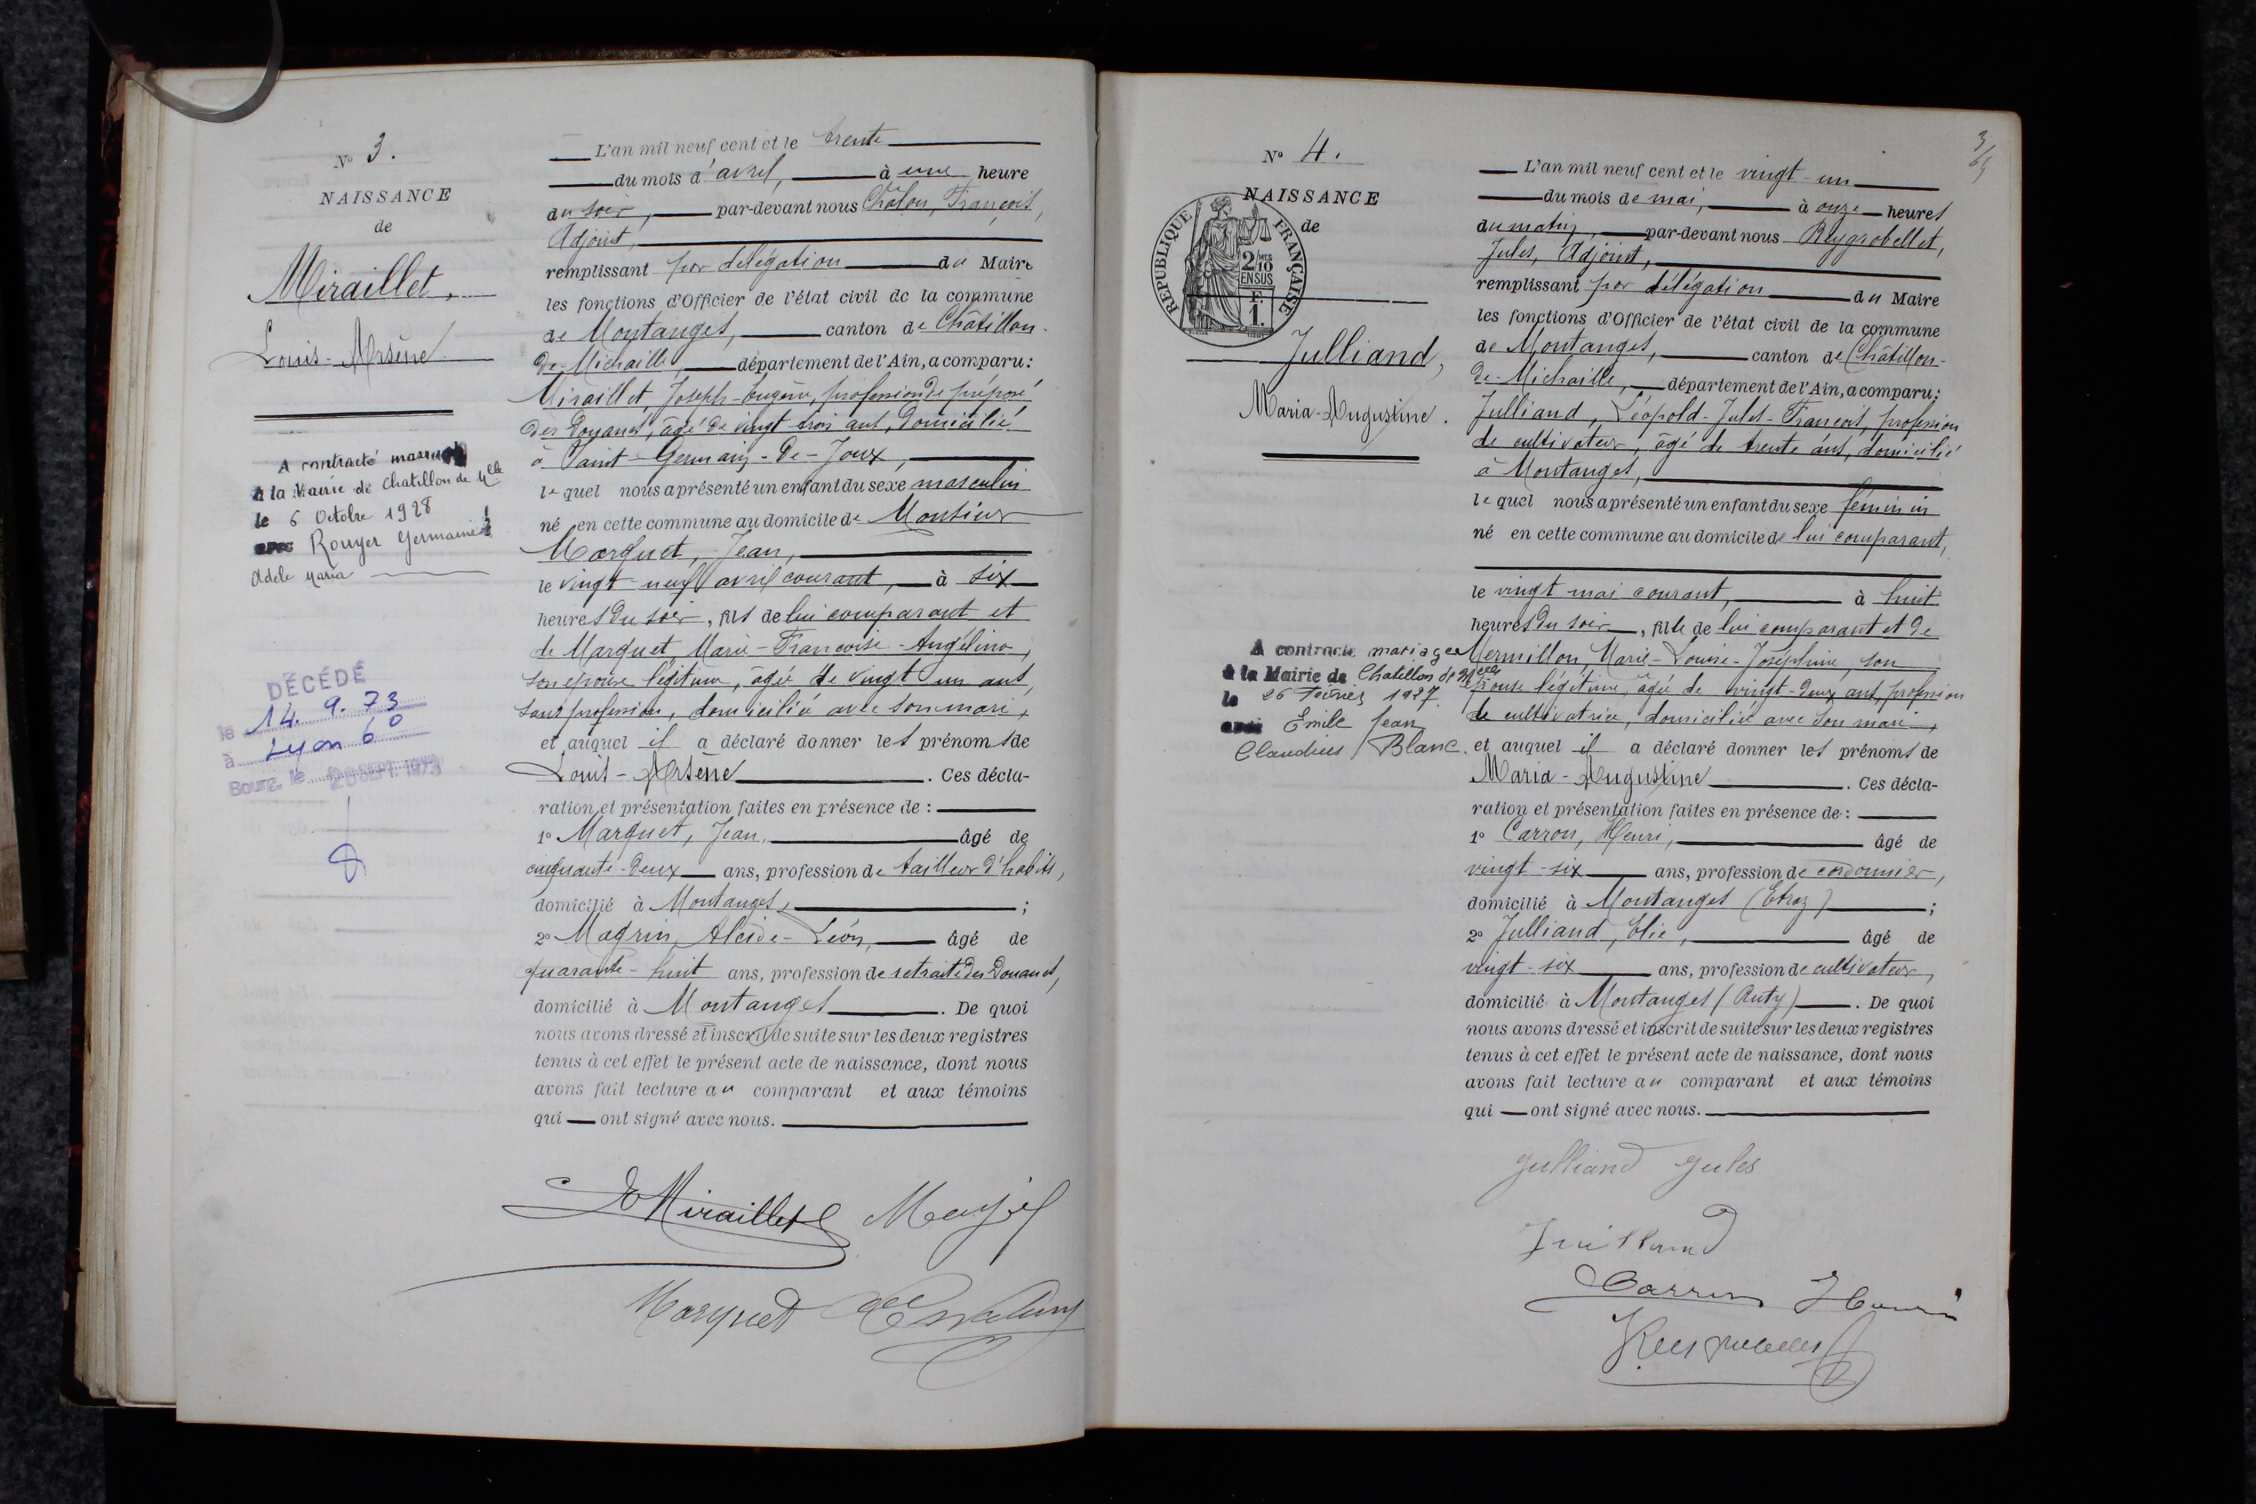 Nº 3.
NAISSANCE
de
Miraillet,
Louis-Arsène
A contracté mariage
à la Mairie de Chatillon de Mlle
le 6 Octobre 1928
avec Rouyer Germaine
Adèle Maria
DÉCÉDÉ
le 14. 9. 73
à Lyon 6º
Bourg, le SEPT. 1973
L'an mil neuf cent et le trente
du mois d'avril, à une heure
du soir, par-devant nous Chalon, François,
Adjoint,
remplissant par délégation du Maire
les fonctions d'Officier de l'état civil de la commune
de Montanges, canton de Châtillon-
de-Michaille, département de l'Ain, a comparu:
Miraillet, Joseph-Eugène, profession de préposé
des Douanes, âgé de vingt-trois ans, domicilié
à Saint-Germain-de-Joux,
lequel nous a présenté un enfant du sexe masculin
né en cette commune au domicile de Monsieur
Marquet, Jean,
le vingt-neuf avril courant, à six
heures du soir, fils de lui comparant et
de Marquet, Marie-Françoise-Angélina,
son épouse légitime, âgée de vingt un ans,
sans profession, domiciliée avec son mari,
et auquel il a déclaré donner les prénoms de
Louis-Arsène. Ces décla-
ration et présentation faites en présence de :
1º Marquet, Jean, âgé de
cinquante-deux ans, profession de tailleur d'habits,
domicilié à Montanges, ;
2º Magrin, Alcide-Léon, âgé de
quarante-huit ans, profession de retraité des Douanes,
domicilié à Montanges. De quoi
nous avons dressé et inscrit de suite sur les deux registres
tenus à cet effet le présent acte de naissance, dont nous
avons fait lecture au comparant et aux témoins
qui ont signé avec nous.
E Miraillet
Marquet
3/65
Nº 4.
NAISSANCE
de
RÉPUBLIQUE FRANÇAISE
2/10
EN SUS
F.
1.
Julliand,
Maria-Augustine.
A contracté mariage
à la Mairie de Chatillon de Mlle
le 26 Février 1927.
avec Emile Jean
Claudius Blanc.
L'an mil neuf cent et le vingt-un
du mois de mai, à onze heures
du matin, par-devant nous Reygrobellet,
Jules, Adjoint,
remplissant par délégation du Maire
les fonctions d'Officier de l'état civil de la commune
de Montanges, canton de Châtillon-
de-Michaille, département de l'Ain, a comparu:
Julliand, Léopold-Jules-François, profession
de cultivateur, âgé de trente ans, domicilié
à Montanges,
lequel nous a présenté un enfant du sexe féminin
né en cette commune au domicile de lui comparant,
le vingt mai courant, à huit
heures du soir, fille de lui comparant et de
Mermillon, Marie-Louise-Joséphine, son
épouse légitime, âgée de vingt-deux ans, profession
de cultivatrice, domiciliée avec son mari,
et auquel il a déclaré donner les prénoms de
Maria-Augustine. Ces décla-
ration et présentation faites en présence de :
1º Carron, Henri, âgé de
vingt-six ans, profession de cordonnier,
domicilié à Montanges (Etraz) ;
2º Julliand, Elie, âgé de
vingt-six ans, profession de cultivateur,
domicilié à Montanges (Ruty). De quoi
nous avons dressé et inscrit de suite sur les deux registres
tenus à cet effet le présent acte de naissance, dont nous
avons fait lecture au comparant et aux témoins
qui ont signé avec nous.
Julliand Jules
Julliand
Carron Henri